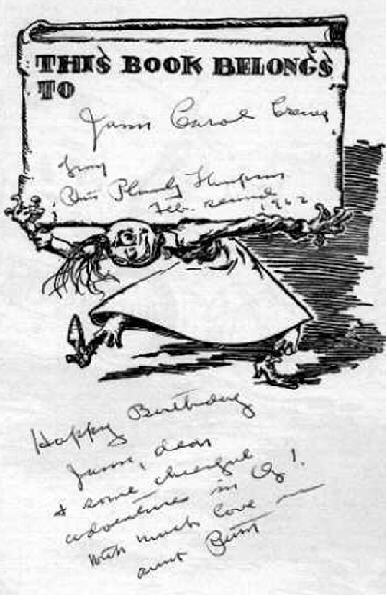 THIS BOOK BELONGS
TO
Carol
Ruth Plumly Thompson
Feb. second 1962
Happy Birthday
dear
& some cheerful
adventures in Oz!
With much love —
aunt Ruth